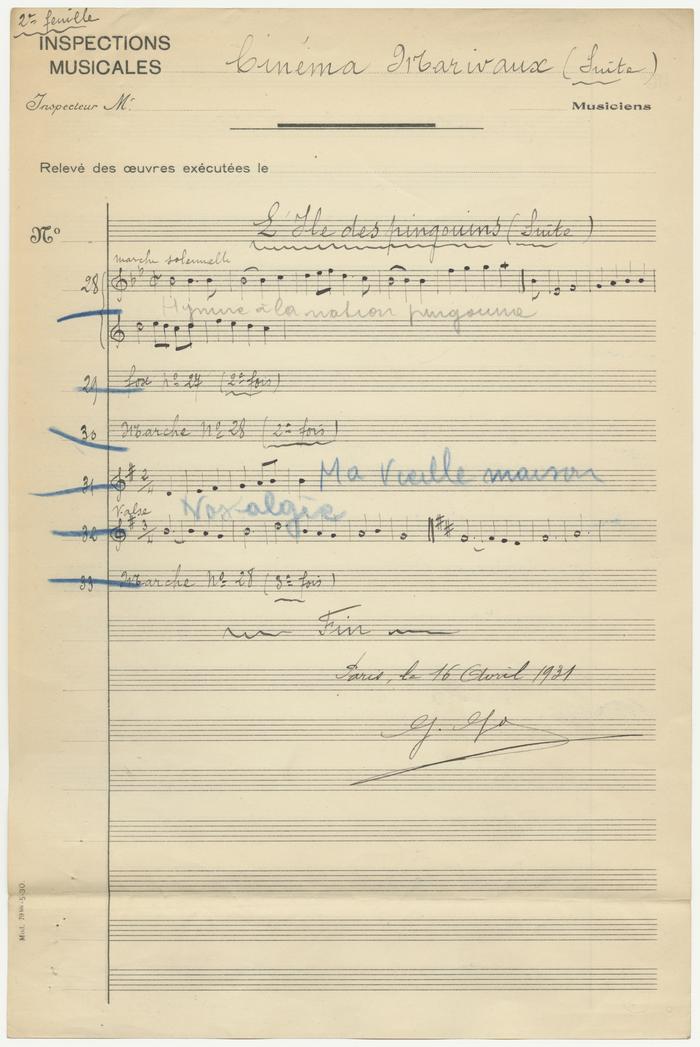 2me feuille
INSPECTIONS
MUSICALES
Cinéma Marivaux (Suite)
Inspecteur Mr
Musiciens
Relevé des œuvres exécutées le
No
L'Ile des pingouins (Suite)
marche solennelle
28
Hymne à la nation pingouine
29 fox No 27 (2e fois)
30 Marche No 28 (2e fois)
31 Ma Vieille maison
Valse
Nostalgie
32
33 Marche No 28 (3e fois)
Fin
Paris, le 16 Avril 1931
Mod. 7988-5-30.